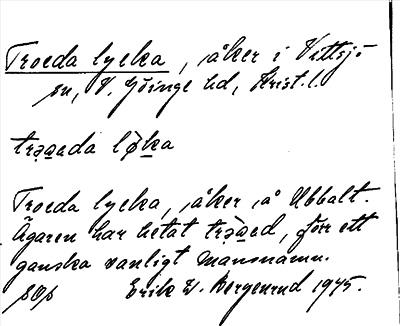 Troeda lycka, åker i Vittsjö
sn, V. Göinge hd, Krist. l.
trǫaeda lø̀ka
Troeda lycka, åker å Ubbalt.
Ägaren har hetat trǫ̀aed, förr ett
ganska vanligt mansnamn.
sOs Erik W. Bergenrud 1945.